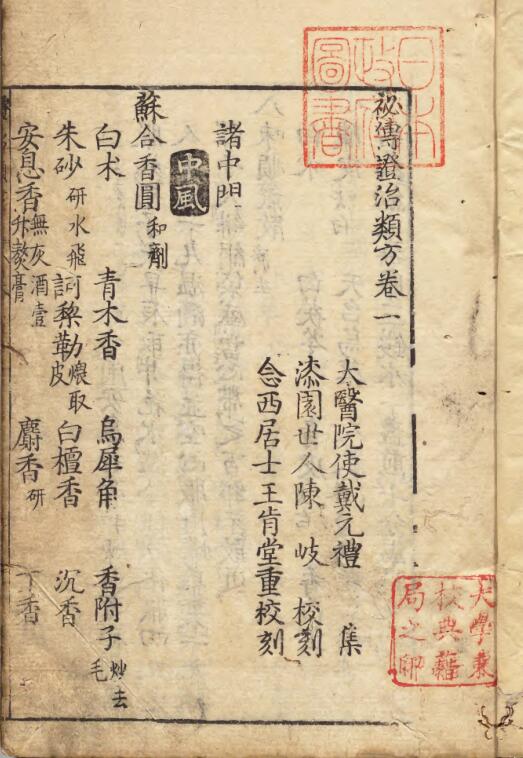 日本
政府
圖書
祕傳證治類方卷一
大醫院使戴元禮 集
漆園世人陳岐 校刻
念西居士王肯堂重校刻
大學東
校典籍
局之印
諸中門
中風
蘇合香圓 和劑
白朮 青木香 烏犀角 香附子 炒去毛
朱砂 研水飛 訶棃勒 煨取皮 白檀香 沉香
安息香 無灰酒壹升熬膏 麝香 研 丁香